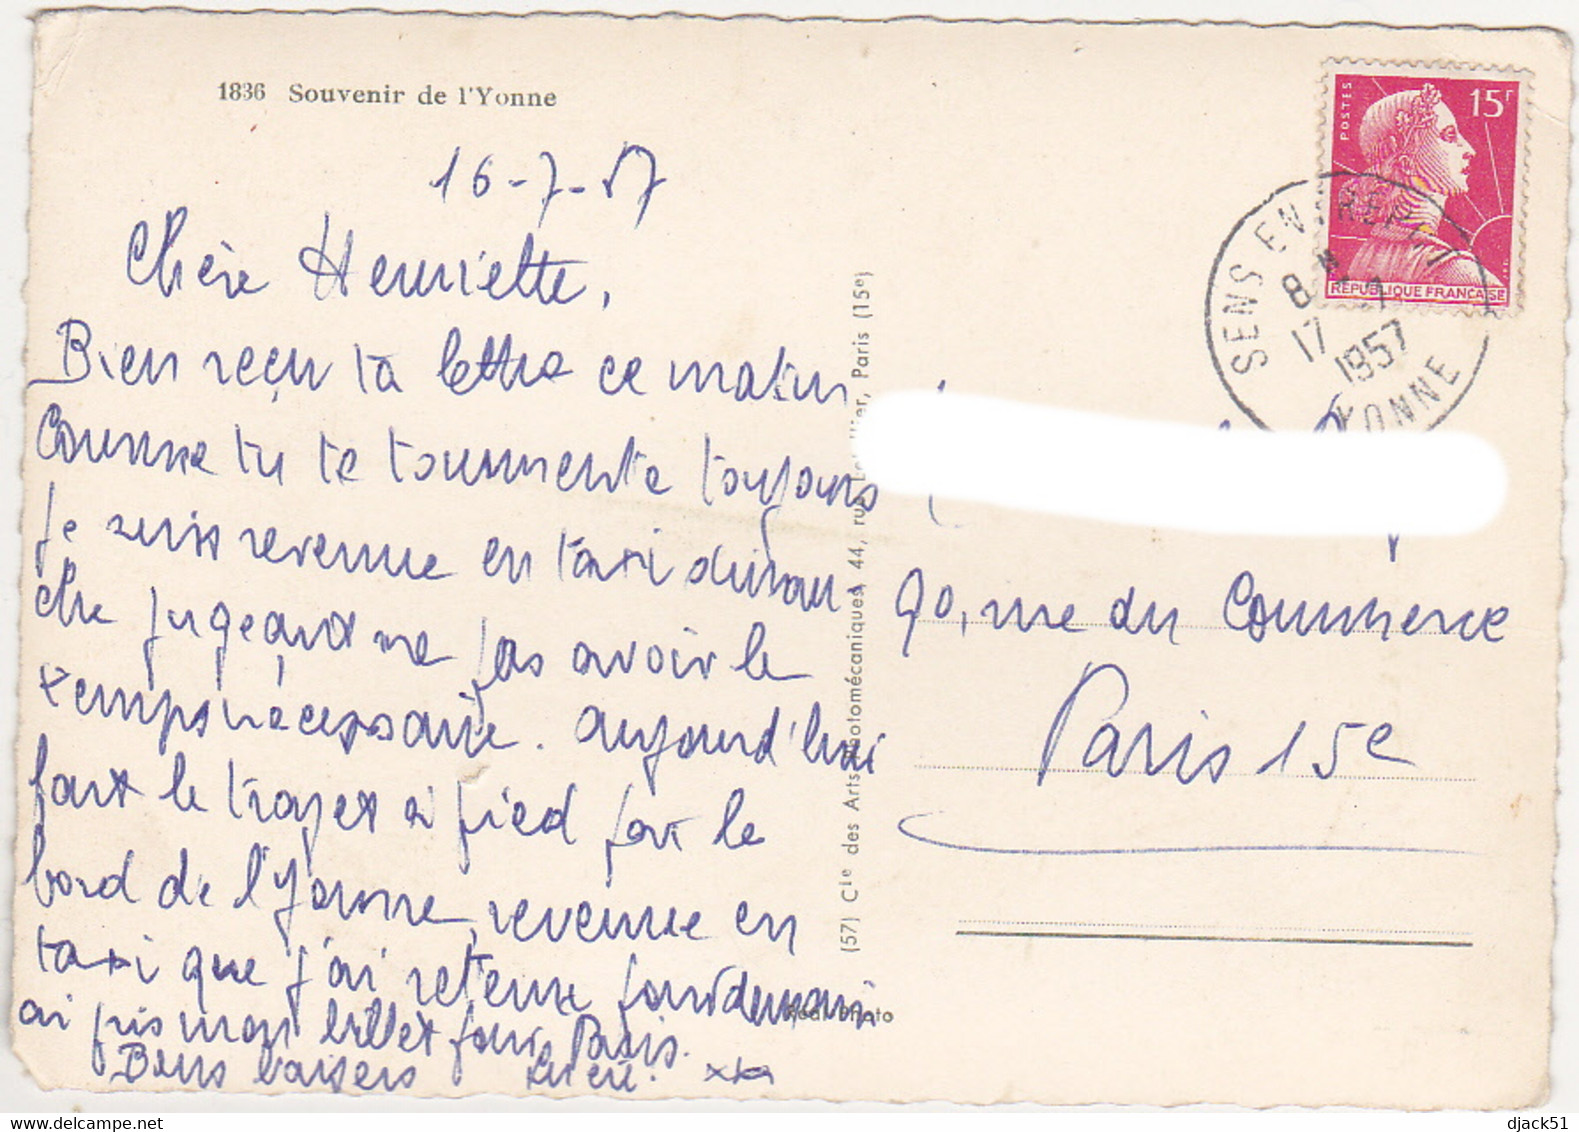 1836 Souvenir de l'Yonne
16-7-57
Chère Henriette,
Bien reçu ta lettre ce matin
Comme tu te tourmente toujours
je suis revenue en taxi diman
che jugeant ne pas avoir le
temps nécessaire. aujourd'hui
fait le trajet à pied par le
bord de l'Yonne, revenue en
taxi que j'ai retenue pour demain
ai pris mon billet pour Paris.
Bons baisers
(57) Cie des Arts Photomécaniques, 44, rue Paris (15e)
Réal-Photo
POSTES
15F
RÉPUBLIQUE FRANÇAISE
SENS ENTREPOT
8H -7
17 1957
YONNE
90, rue du Commerce
Paris 15e
www.delcampe.net
djack51